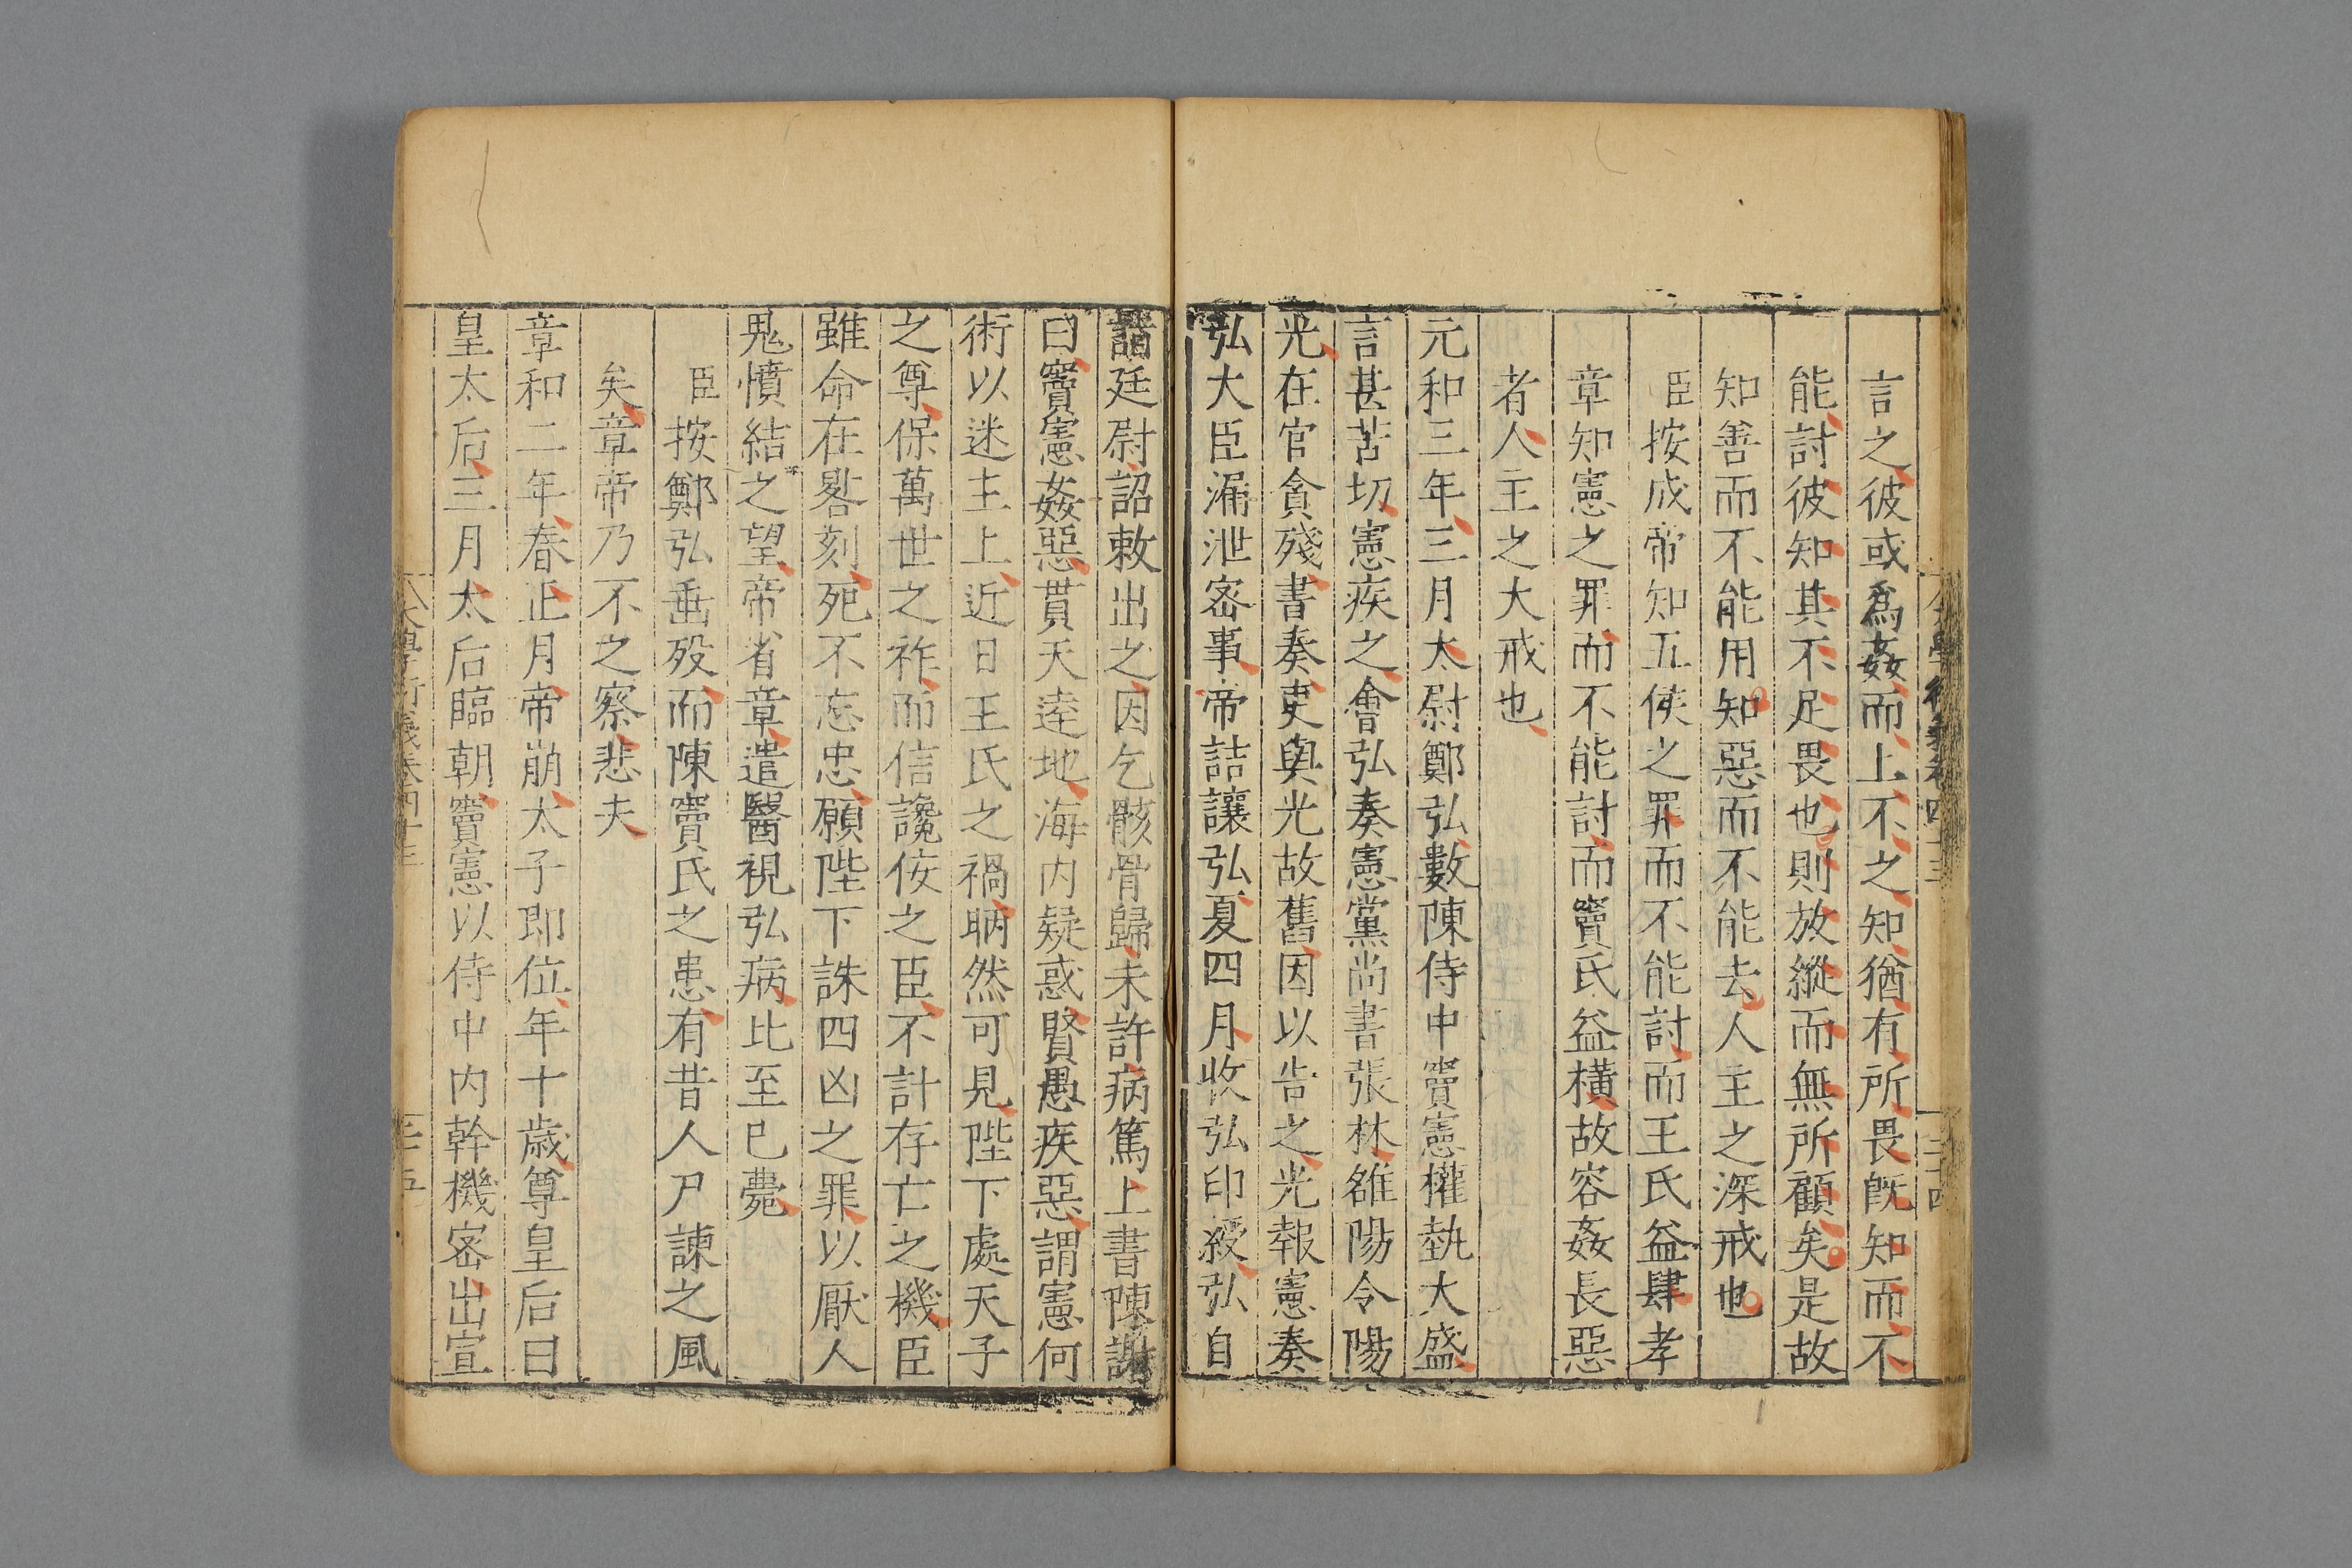 言之彼或爲姦而上不之知猶有所畏旣知而不
能討彼知其不足畏也則放縱而無所顧矣是故
知善而不能用知惡而不能去人主之深戒也
臣按成帝知五侯之罪而不能討而王氏益肆孝
章知憲之罪而不能討而竇氏益橫故容姦長惡
者人主之大戒也
元和三年三月太尉鄭弘數陳侍中竇憲權埶大盛
言甚苦切憲疾之會弘奏憲黨尚書張林雒陽令陽
光在官貪殘書奏吏與光故舊因以告之光報憲奏
弘大臣漏泄密事帝詰讓弘夏四月收弘印綬弘自
詣廷尉詔敕出之因乞骸骨歸未許病篤上書陳謝
曰竇憲姦惡貫天逵地海内疑惑賢愚疾惡謂憲何
術以迷主上近日王氏之禍昞然可見陛下處天子
之尊保萬世之祚而信讒佞之臣不計存亡之機臣
雖命在晷刻死不忘忠願陛下誅四凶之罪以厭人
鬼憤結之望帝省章遣醫視弘病比至已薨
臣按鄭弘垂歿而陳竇氏之患有昔人尸諫之風
矣章帝乃不之察悲夫
章和二年春正月帝崩太子即位年十歲尊皇后曰
皇太后三月太后臨朝竇憲以侍中内幹機密出宣
大學衍義卷四十三
三十五